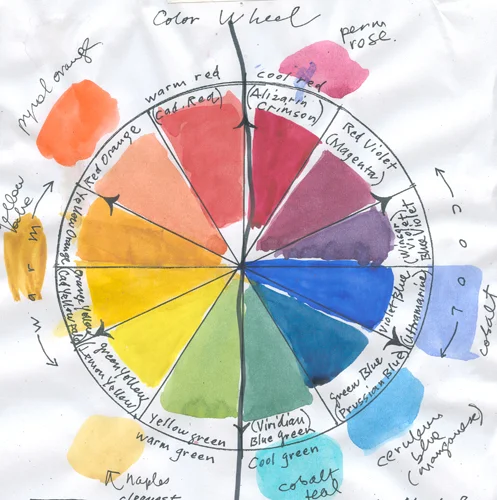 Color Wheel
perm
rose.
pyrrol orange
warm red
(Cad. Red)
cool red
(Alizarin
Crimson)
Red Violet
(Magenta)
Red Orange
Yellow Orange
Violet
Blue Violet
warm
cool
Orange Yellow
(Cad Yellow
Violet Blue
(Ultramarine)
cobalt
green Yellow
(Lemon Yellow)
Green Blue
(Prussian Blue)
Yellow green
warm green
(Viridian)
Blue green
Cool green
cerulean
blue
(manganese)
Naples
cobalt
teal